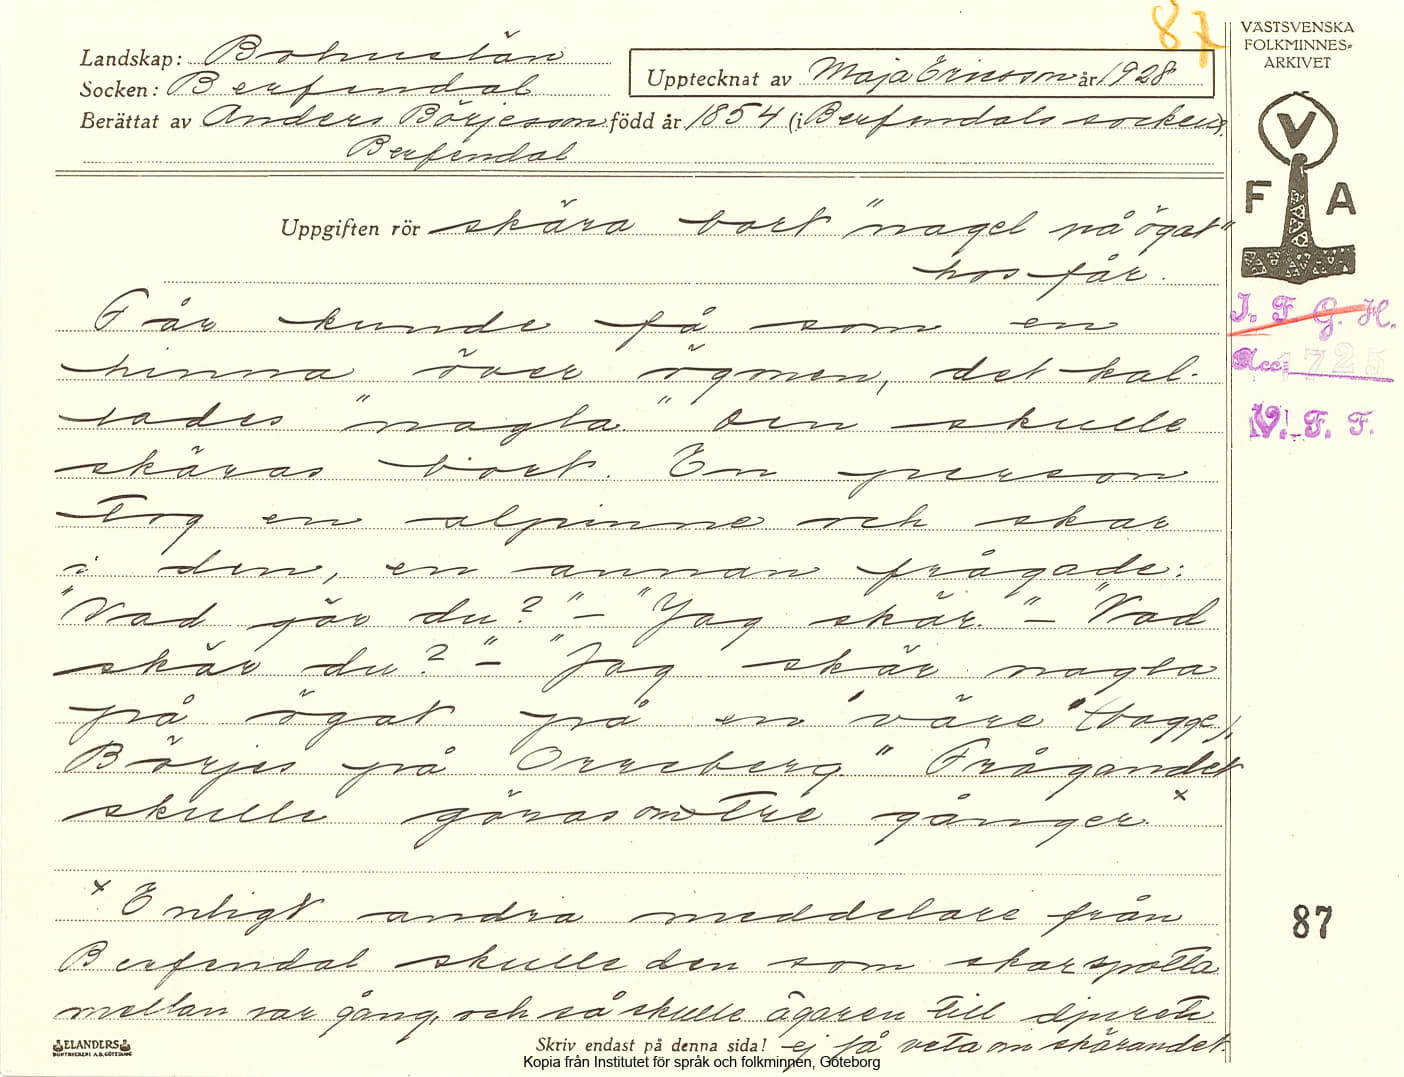 87
VÄSTSVENSKA
FOLKMINNES-
ARKIVET
Landskap: Bohuslän
Socken: Berfendal
Upptecknat av Maja Ericson år 1928
Berättat av Anders Börjeson född år 1854 (i Berfendals socken).
Berfendal
V
F A
Uppgiften rör skära bort "nagel på ögat"
hos får.
I. F. G. H.
Acc: 1725
V. F. F.
Får kunde få som en
hinna över ögonen, det kal-
lades "nagla" Den skulle
skäras bort. En person
tog en alpinne och skar
i den, en annan frågade:
"Vad gör du?" – "Jag skär." – "Vad
skär du?" – "Jag skär nagla
på ögat på en 'väre' (bagge),
Börjes på Orreberg." Frågandet
skulle göras om tre gånger. x
x Enligt andra meddelare från
Berfendal skulle den som skar spotta
mellan var gång, och så skulle ägaren till djuret
ej få veta om skärandet
87
ELANDERS
BOKTRYCKERI A.B. GÖTEBORG
Skriv endast på denna sida!
Kopia från Institutet för språk och folkminnen, Göteborg